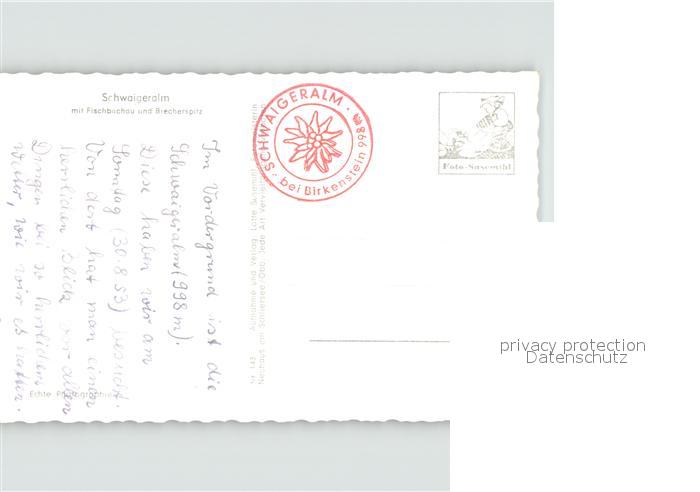 Schwaigeralm
mit Fischbachau und Brecherspitz
SCHWAIGERALM · bei Birkenstein 998 m
Foto-Sasemihl
Im Vordergrund ist die
Schwaigeralm (998 m).
Diese haben wir am
Sonntag (30.8.53) besucht.
Von dort hat man einen
herrlichen Blick vor allem
Dingen bei so herrlichem
Wetter, wie wir es hatten.
Echte Photographie
Nr. 143 Aufnahme und Verlag: Lotte
Neuhaus am Schliersee/Obb. Jede Art Vervielf
privacy protection
Datenschutz